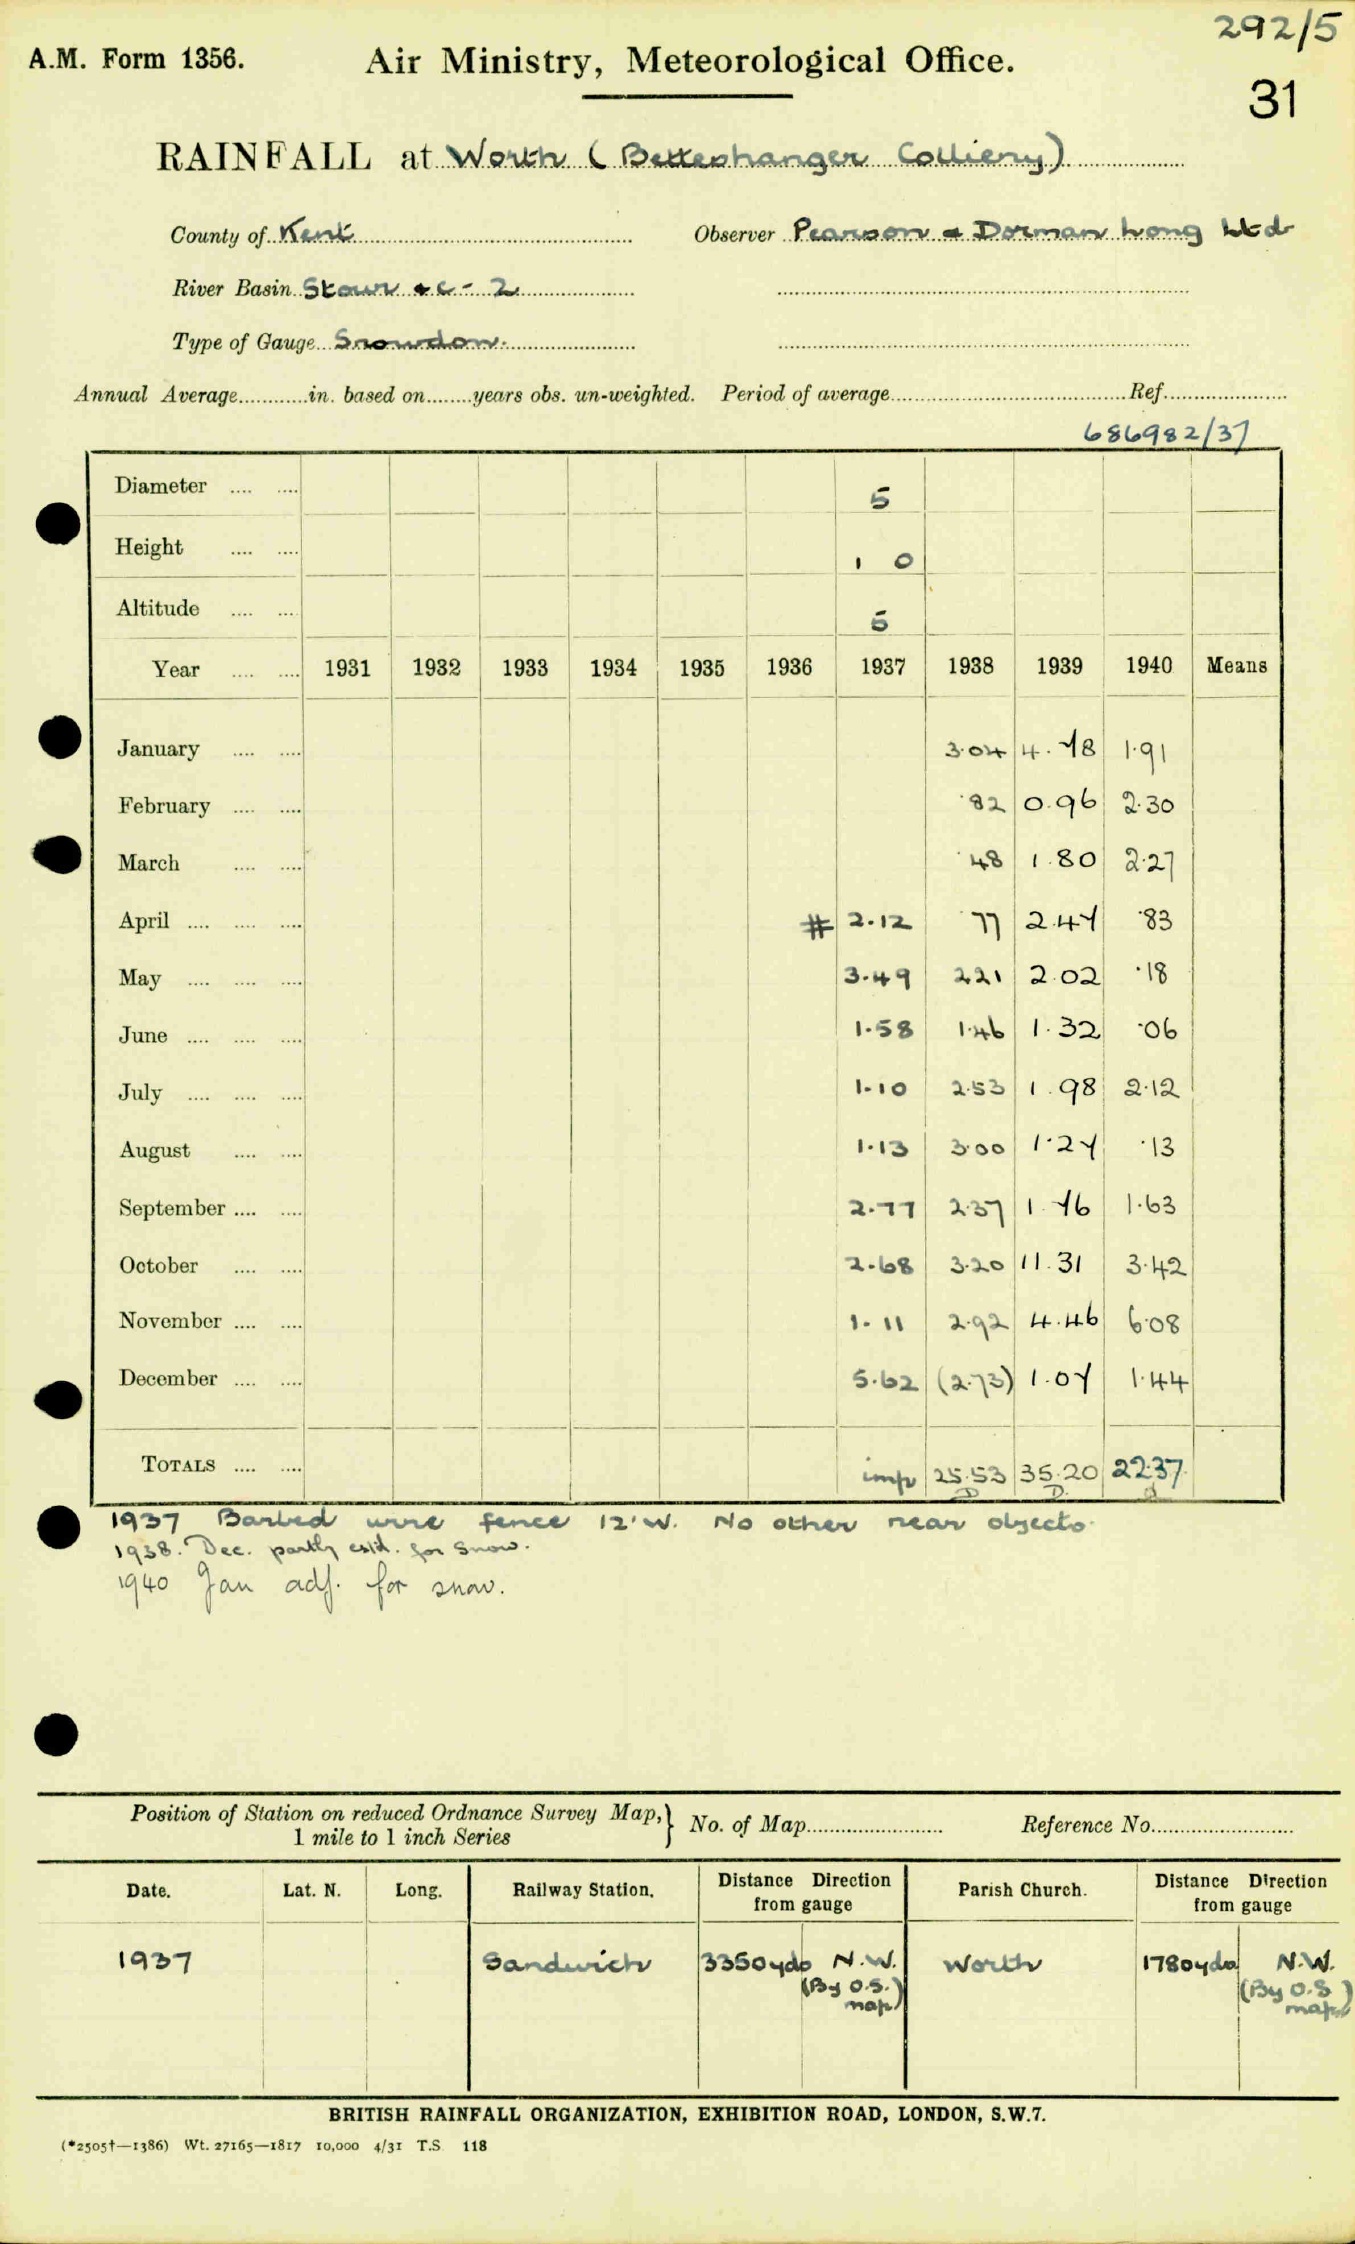 292/5
A.M. Form 1356. Air Ministry, Meteorological Office.
31
RAINFALL at Worth (Betteshanger Colliery)
County of Kent Observer Pearson & Dorman Long Ltd
River Basin Stour &c - 2
Type of Gauge Snowdon.
Annual Average............in. based on........years obs. un-weighted. Period of average.......... Ref..........
686982/37
Diameter .... .... 5
Height .... .... 1 0
Altitude .... .... 5
Year .... .... 1931 1932 1933 1934 1935 1936 1937 1938 1939 1940 Means
January .... .... 3.04 4.78 1.91
February .... .... .82 0.96 2.30
March .... .... .48 1.80 2.27
April .... .... .... # 2.12 .77 2.47 .83
May .... .... .... 3.49 2.21 2.02 .18
June .... .... .... 1.58 1.46 1.32 .06
July .... .... .... 1.10 2.53 1.98 2.12
August .... .... 1.13 3.00 1.27 .13
September .... .... 2.77 2.37 1.76 1.63
October .... .... 2.68 3.20 11.31 3.42
November .... .... 1.11 2.92 4.46 6.08
December .... .... 5.62 (2.73) 1.07 1.44
TOTALS .... .... imp 25.53 35.20 22.37
D D
1937 Barbed wire fence 12' W. No other near objects.
1938. Dec. partly estd. for snow.
1940 Jan adj. for snow.
Position of Station on reduced Ordnance Survey Map, } No. of Map.......... Reference No..........
1 mile to 1 inch Series
Date. Lat. N. Long. Railway Station. Distance Direction from gauge Parish Church. Distance Direction from gauge
1937 Sandwich 3350yds N.W. Worth 1780yds N.W.
(By O.S. map) (By O.S map)
BRITISH RAINFALL ORGANIZATION, EXHIBITION ROAD, LONDON, S.W.7.
(*2505†—1386) Wt. 27165—1817 10,000 4/31 T.S. 118